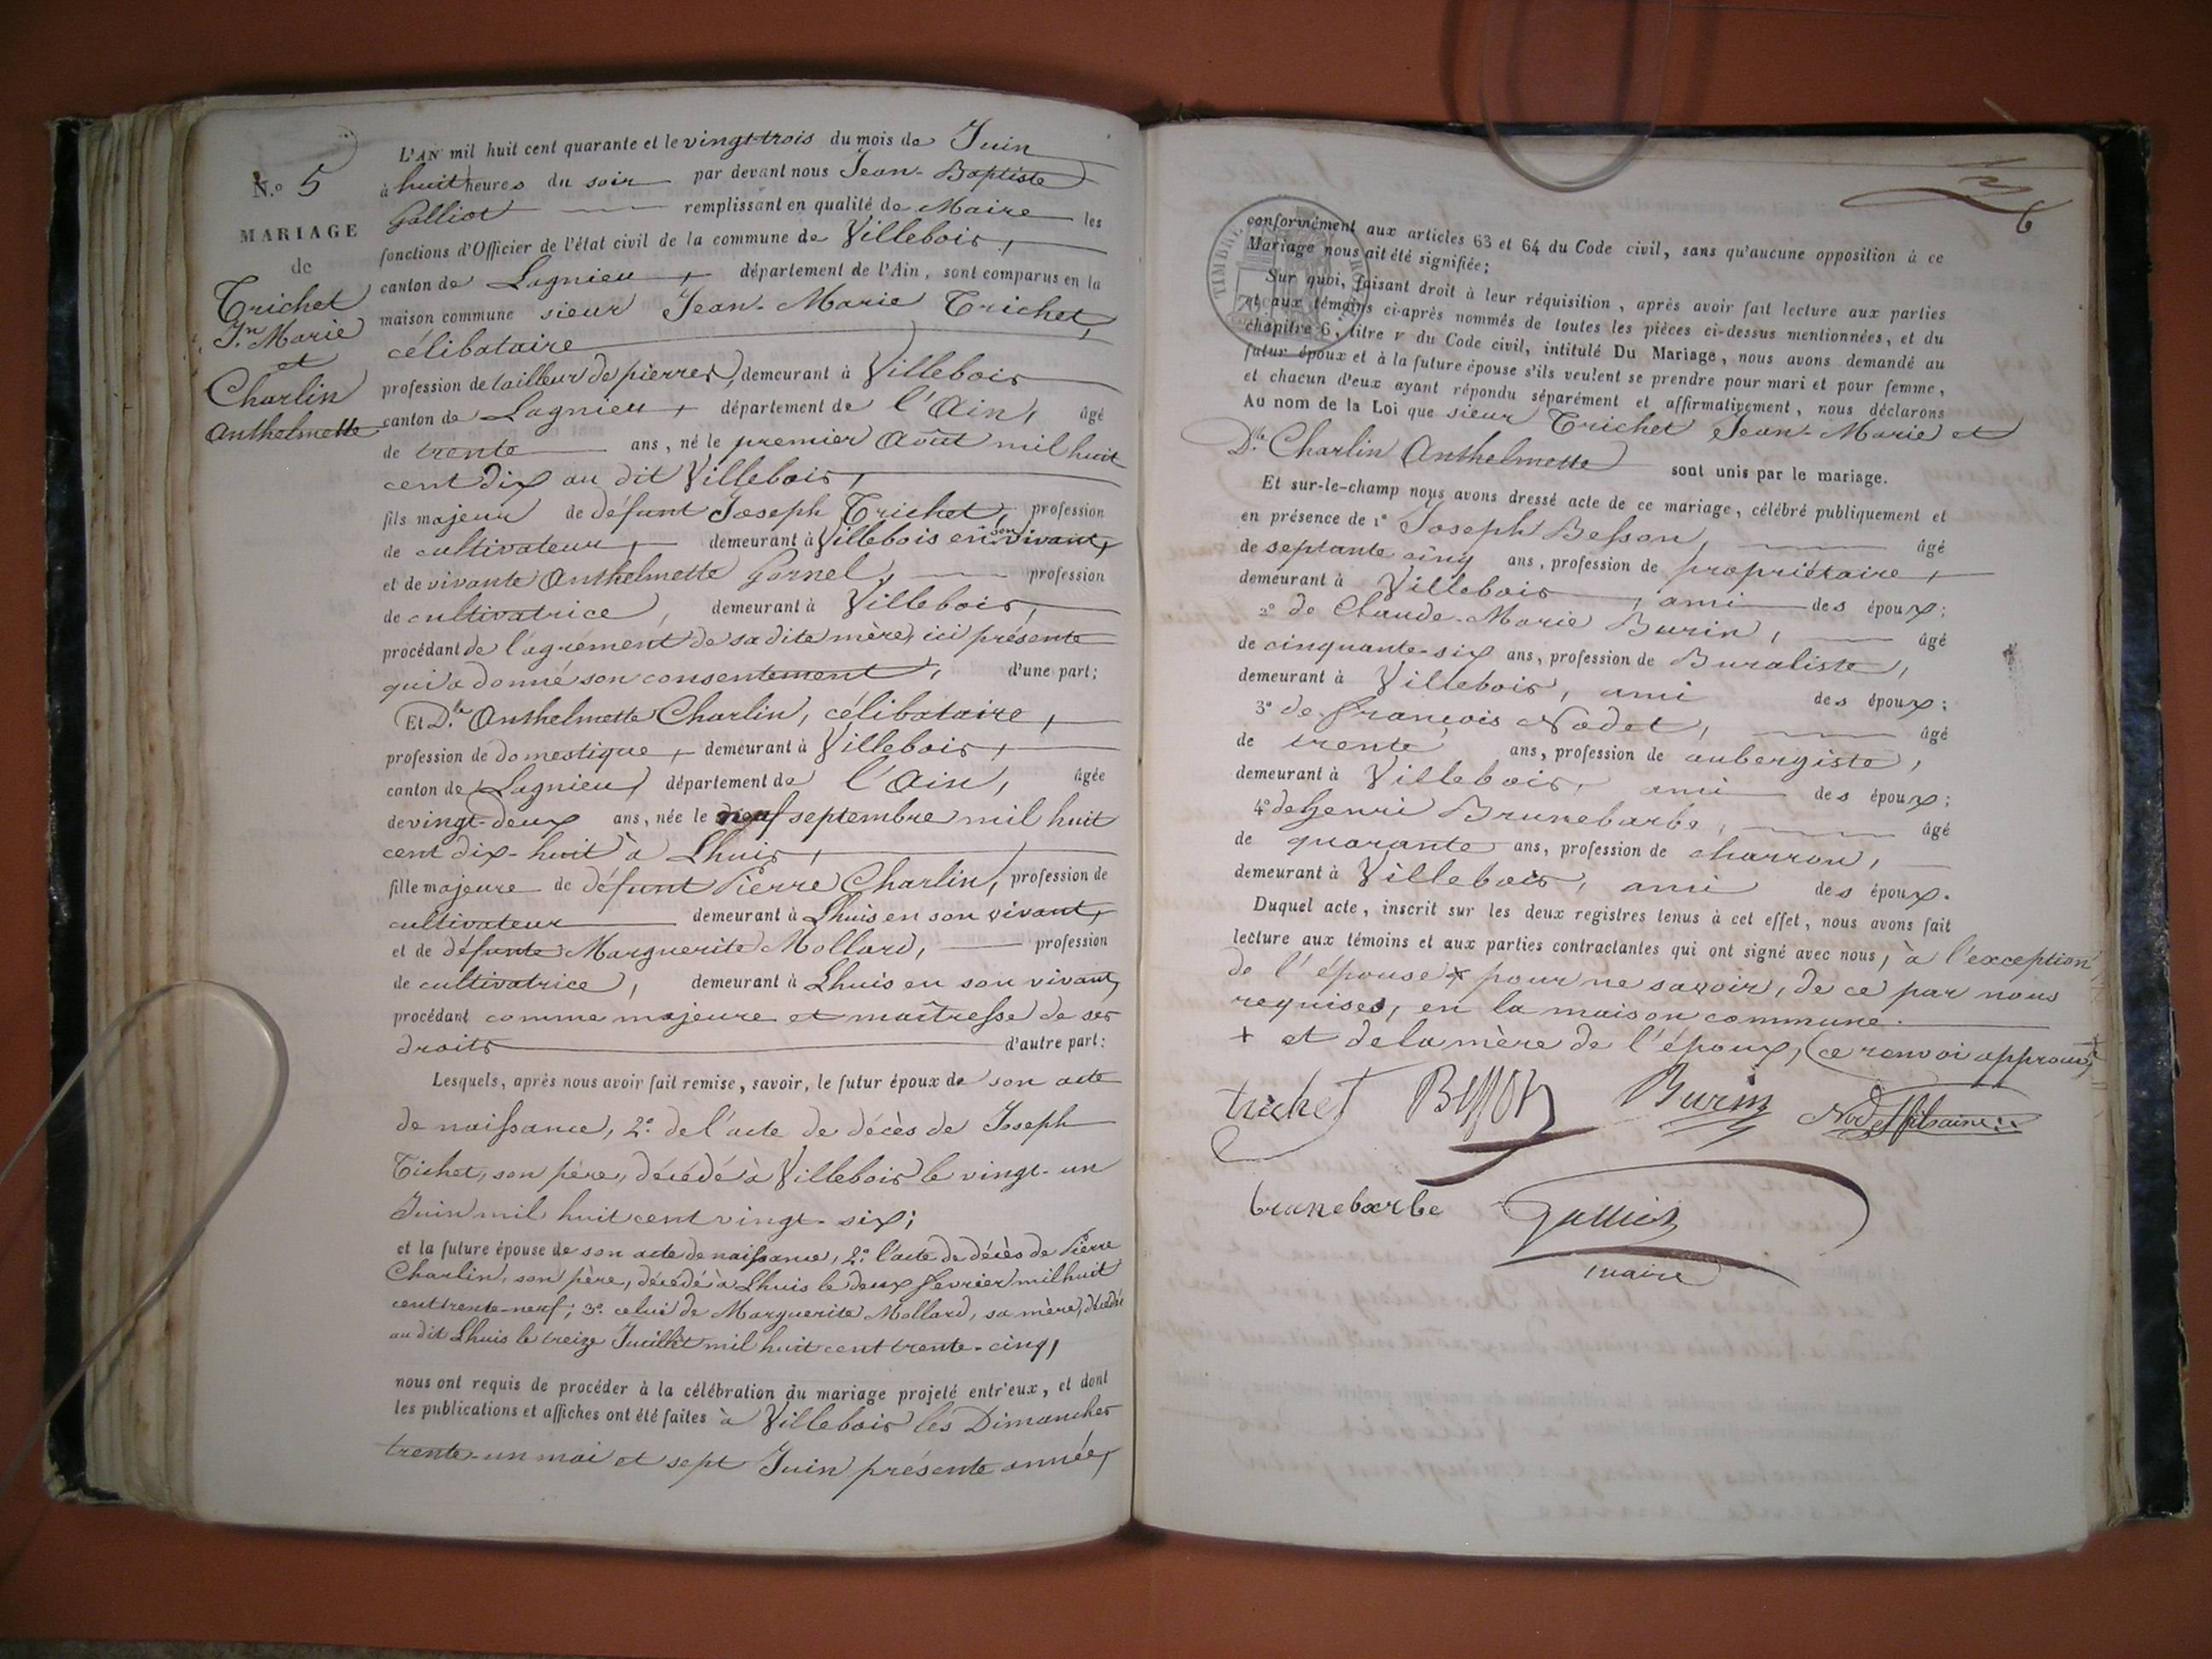 N.o 5
MARIAGE
de
Trichet
Jn. Marie
et
Charlin
Anthelmette
L'AN mil huit cent quarante et le vingt-trois du mois de Juin
à huit heures du soir par devant nous Jean-Baptiste
Galliot remplissant en qualité de Maire les
fonctions d'Officier de l'état civil de la commune de Villebois,
canton de Lagnieu, département de l'Ain, sont comparus en la
maison commune sieur Jean-Marie Trichet,
célibataire
profession de tailleur de pierres, demeurant à Villebois
canton de Lagnieu, département de l'Ain, âgé
de trente ans, né le premier Août mil huit
cent dix au dit Villebois,
fils majeur de défunt Joseph Trichet, profession
de cultivateur, demeurant à Villebois en son vivant,
et de vivante Anthelmette Gornel, profession
de cultivatrice, demeurant à Villebois,
procédant de l'agrément de sa dite mère, ici présente
qui a donné son consentement, d'une part;
Et D.lle Anthelmette Charlin, célibataire,
profession de domestique, demeurant à Villebois,
canton de Lagnieu, département de l'Ain, âgée
de vingt-deux ans, née le neuf septembre mil huit
cent dix-huit à Lhuis,
fille majeure de défunt Pierre Charlin, profession de
cultivateur demeurant à Lhuis en son vivant,
et de défunte Marguerite Mollard, profession
de cultivatrice, demeurant à Lhuis en son vivant,
procédant comme majeure et maîtresse de ses
droits d'autre part:
Lesquels, après nous avoir fait remise, savoir, le futur époux de son acte
de naissance, 2.o de l'acte de décès de Joseph
Tichet, son père, décédé à Villebois le vingt-un
Juin mil huit cent vingt-six;
et la future épouse de son acte de naissance, 2.o l'acte de décès de Pierre
Charlin, son père, décédé à Lhuis le deux fevrier mil huit
cent trente-neuf; 3.o celui de Marguerite Mollard, sa mère, décédée
au dit Lhuis le treize Juillet mil huit cent trente-cinq,
nous ont requis de procéder à la célébration du mariage projeté entr'eux, et dont
les publications et affiches ont été faites à Villebois les Dimanches
trente-un mai et sept Juin présente année,
6
TIMBRE ROYAL
conformément aux articles 63 et 64 du Code civil, sans qu'aucune opposition à ce
Mariage nous ait été signifiée;
Sur quoi, faisant droit à leur réquisition, après avoir fait lecture aux parties
et aux témoins ci-après nommés de toutes les pièces ci-dessus mentionnées, et du
chapitre 6, titre v du Code civil, intitulé Du Mariage, nous avons demandé au
futur époux et à la future épouse s'ils veulent se prendre pour mari et pour femme,
et chacun d'eux ayant répondu séparément et affirmativement, nous déclarons
Au nom de la Loi que sieur Trichet Jean-Marie et
D.lle Charlin Anthelmette sont unis par le mariage.
Et sur-le-champ nous avons dressé acte de ce mariage, célébré publiquement et
en présence de 1° Joseph Besson, âgé
de septante cinq ans, profession de propriétaire,
demeurant à Villebois, ami des époux;
2° de Claude-Marie Burin, âgé
de cinquante-six ans, profession de Buraliste,
demeurant à Villebois, ami des époux;
3° de françois Nodet, âgé
de trente ans, profession de aubergiste,
demeurant à Villebois, ami des époux;
4° de henri Brunebarbe, âgé
de quarante ans, profession de charron,
demeurant à Villebois, ami des époux.
Duquel acte, inscrit sur les deux registres tenus à cet effet, nous avons fait
lecture aux témoins et aux parties contractantes qui ont signé avec nous, à l'exception
de l'épouse + pour ne savoir, de ce par nous
requises, en la maison commune.
+ et de la mère de l'époux, (ce renvoi approuvé)
trichet Besson Burin Nodet fils ainé
brunebarbe Galliot
maire